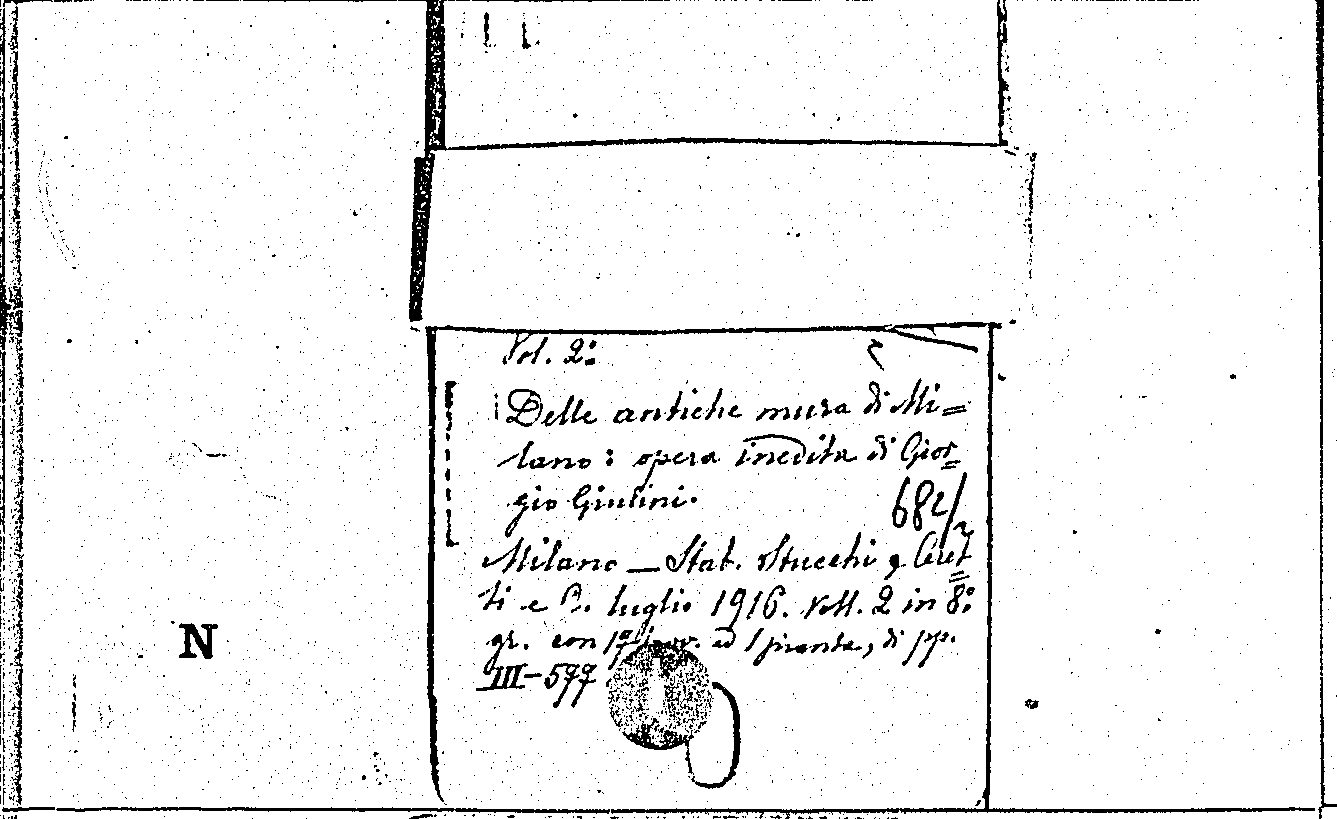 Vol. 2:
Delle antiche mura di Mi=
lano: opera inedita di Gior=
gio Giulini.
682/
Milano — Stab. Stucchi, Ceret=
ti e C. luglio 1916. Voll. 2 in 8:
gr. con 1ª ed 1 pianta, di pp.
III-577
N